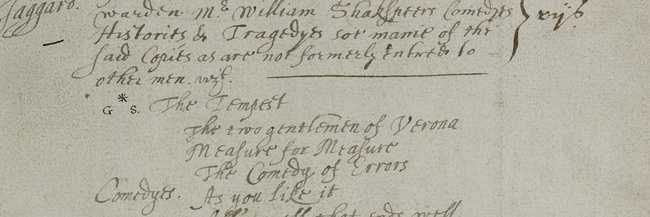 Jaggard. warden Mr. William Shakspeers Comedyes vijs
Histories & Tragedyes soe manie of the
said Copies as are not formerly entred to
other men. vizt.
G * S. The Tempest
The two gentlemen of Verona
Measure for Measure
The Comedy of Errors
Comedyes. As you like it
All's well that ends well